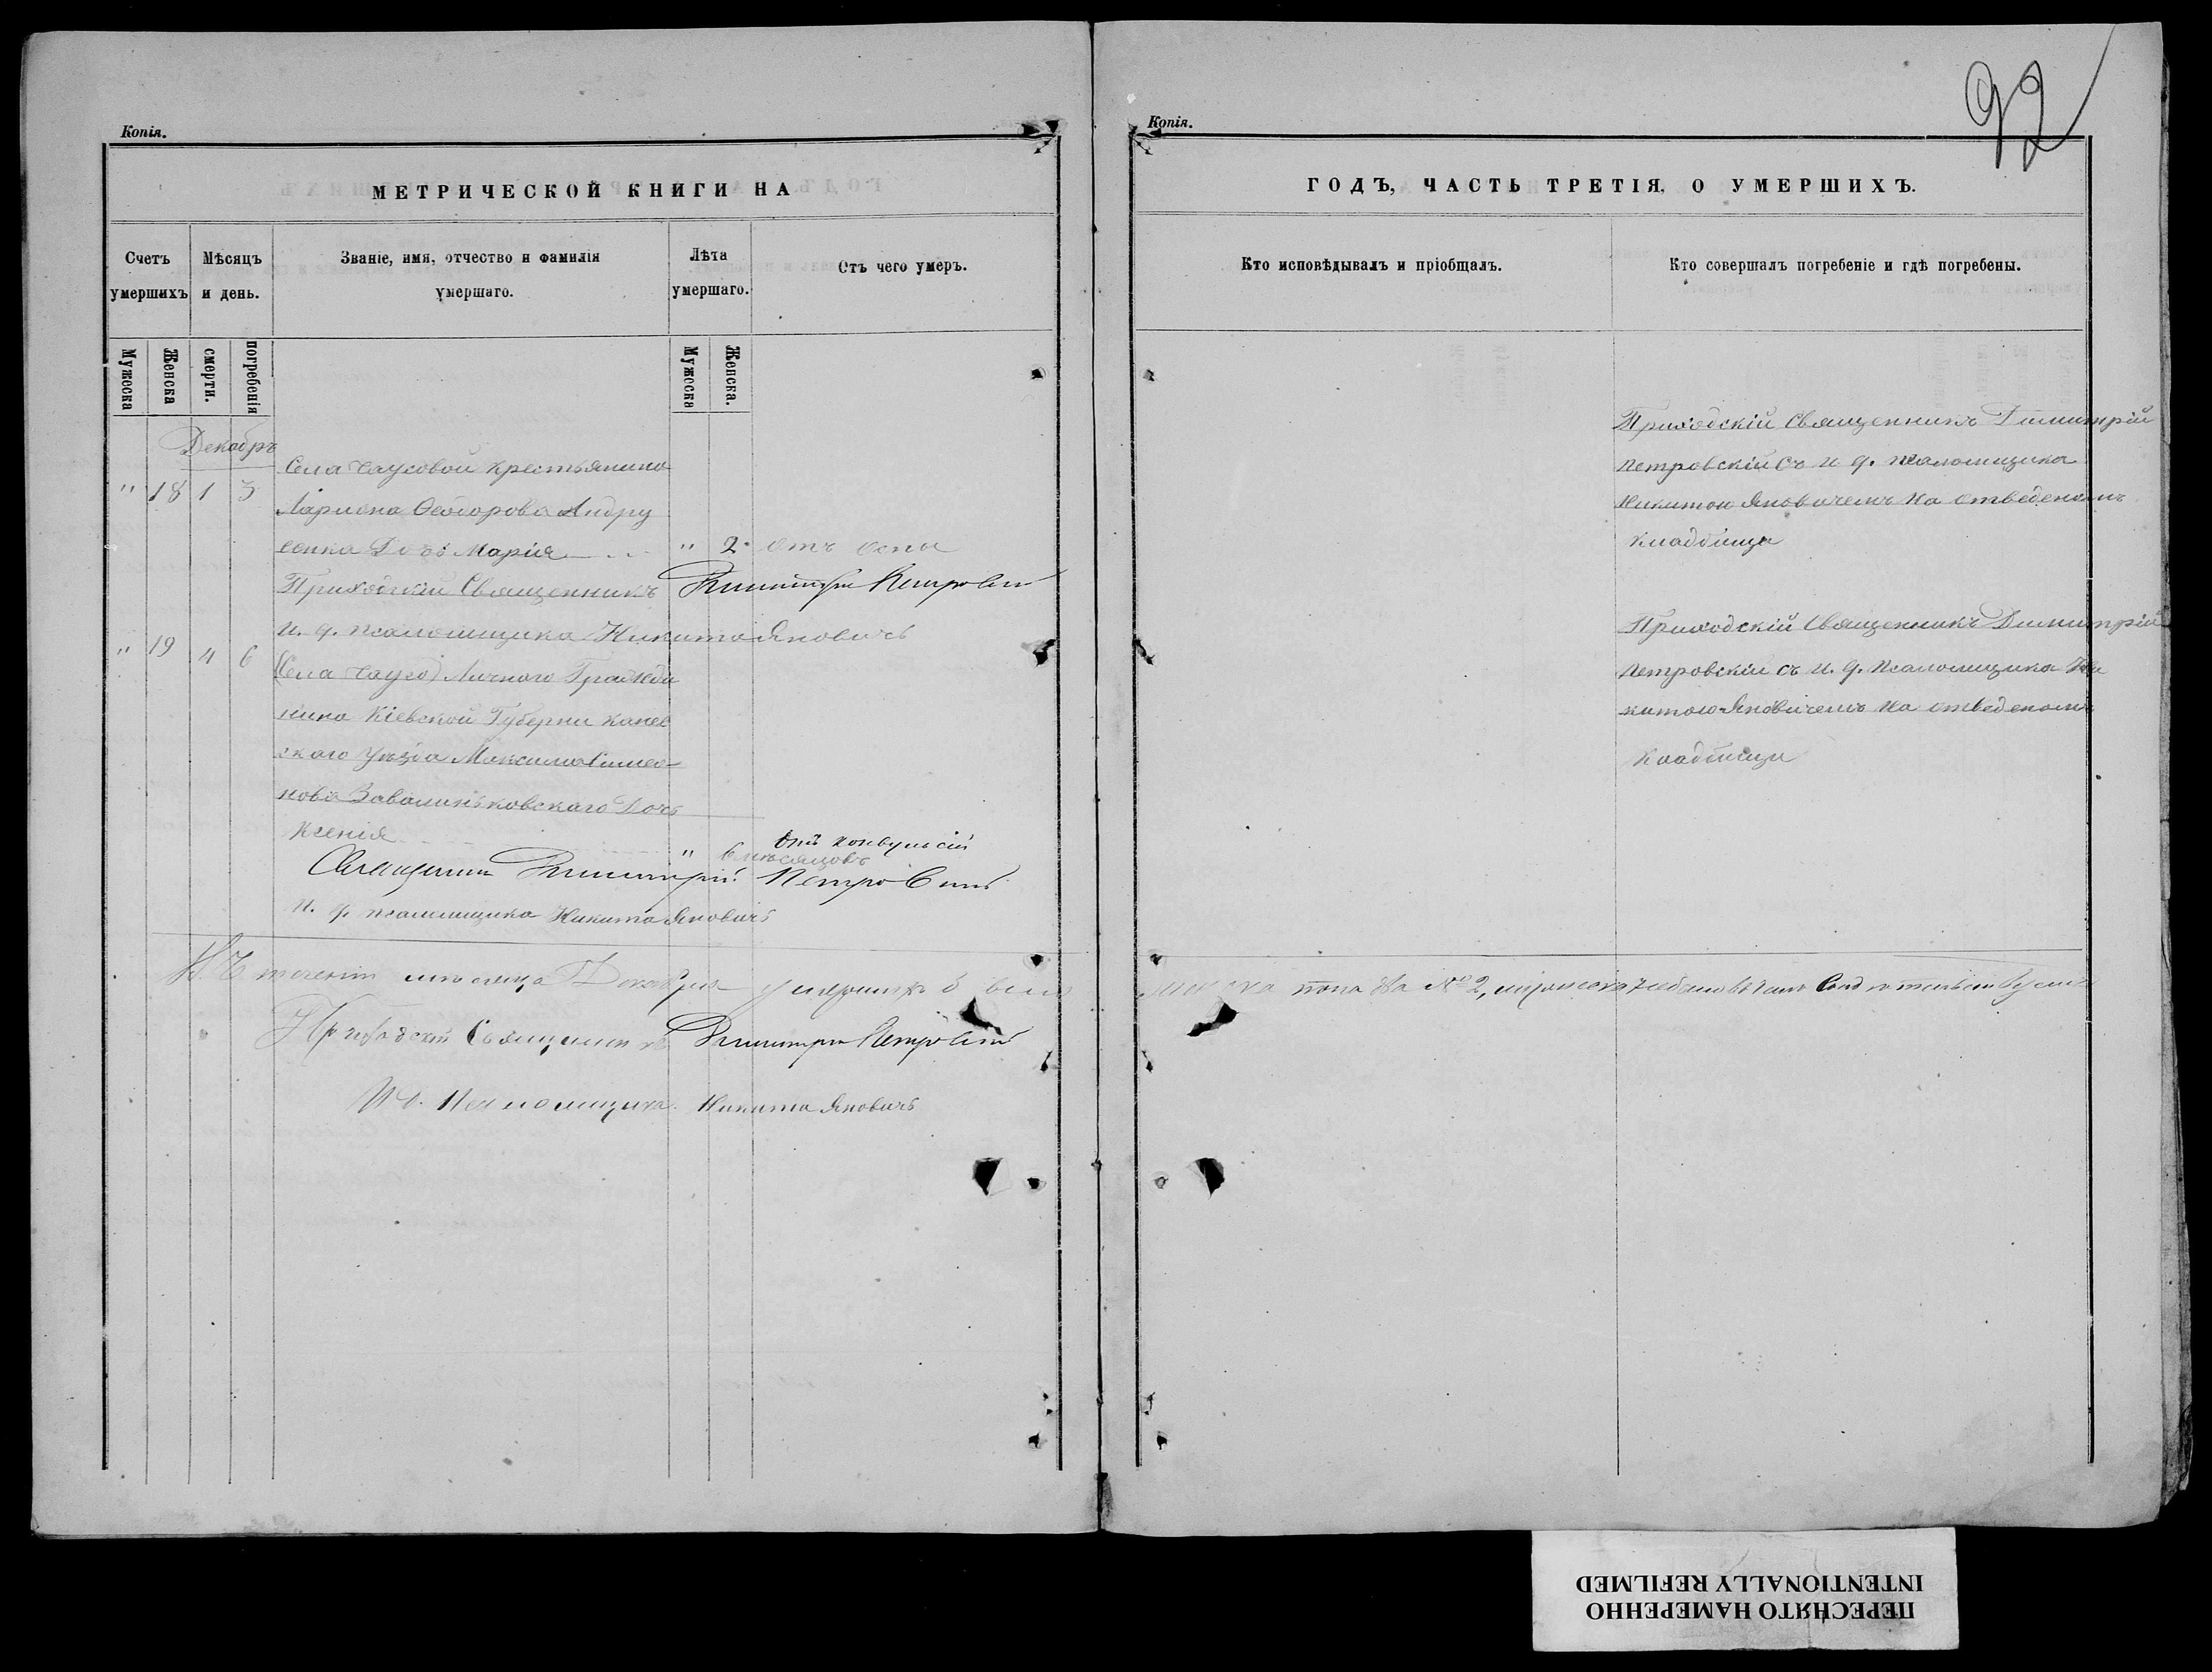 92
Копія.
МЕТРИЧЕСКОЙ КНИГИ НА
Счетъ умершихъ
Мѣсяцъ и день.
Званіе, имя, отчество и фамилія умершаго.
Лѣта умершаго.
Отъ чего умеръ.
Мужеска
Женска
смерти.
погребенія
Мужеска
Женска.
Декабрь
Села Чаусовой крестьянина
" 18 1 3
Ларіона Ѳеодорова Андру
сенка Дочь Марія " 2 отъ оспы
Приходскій Священникъ Димитрій Петровскій
и. д. псаломщика Никита Яновичъ
" 19 4 6
(Села Чаусо) Личного Гражда
нина Кіевской Губерни Канев
скаго уѣзда Максима Симео-
нова Дочь
Ксенія " 6 мѣсяцовъ отъ конвульсій
Священникъ Димитрій Петровскій
и. д. псаломщика Никита Яновичъ
теченіи мѣсяца Декабря
Приходскій Священникъ Димитрій Петровскій
И д. Псаломщика Никита Яновичъ
Копія.
ГОДЪ, ЧАСТЬ ТРЕТІЯ, О УМЕРШИХЪ.
Кто исповѣдывалъ и пріобщалъ.
Кто совершалъ погребеніе и гдѣ погребены.
Приходскій Священникъ Димитрій
Петровскій съ и д. псаломщика
Никитою Яновичемъ на отведеномъ
кладбищи
Приходскій Священникъ Димитрій
Петровскій съ и. д. псаломщика Ни
китою Яновичемъ на отведеномъ
кладбищи
пола два № 2,
ПЕРЕСНЯТО НАМЕРЕННО
INTENTIONALLY REFILMED